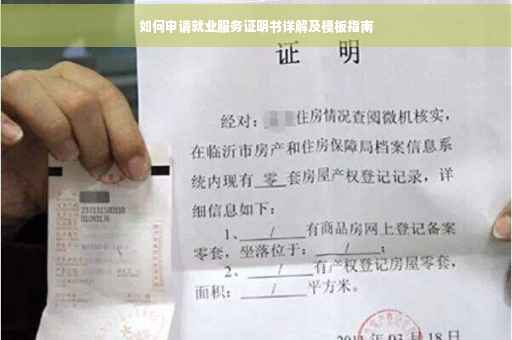 如何申请就业服务证明书详解及模板指南
证 明
经对：住房情况查阅微机核实，
在临沂市房产和住房保障局档案信息系
统内现有 零 套房屋产权登记记录，详
细信息如下：
1、 / 有商品房网上登记备案
零套，坐落位于： / ；
2、 / 有产权登记房屋零套，
面积： / 平方米。
03 月 18 日